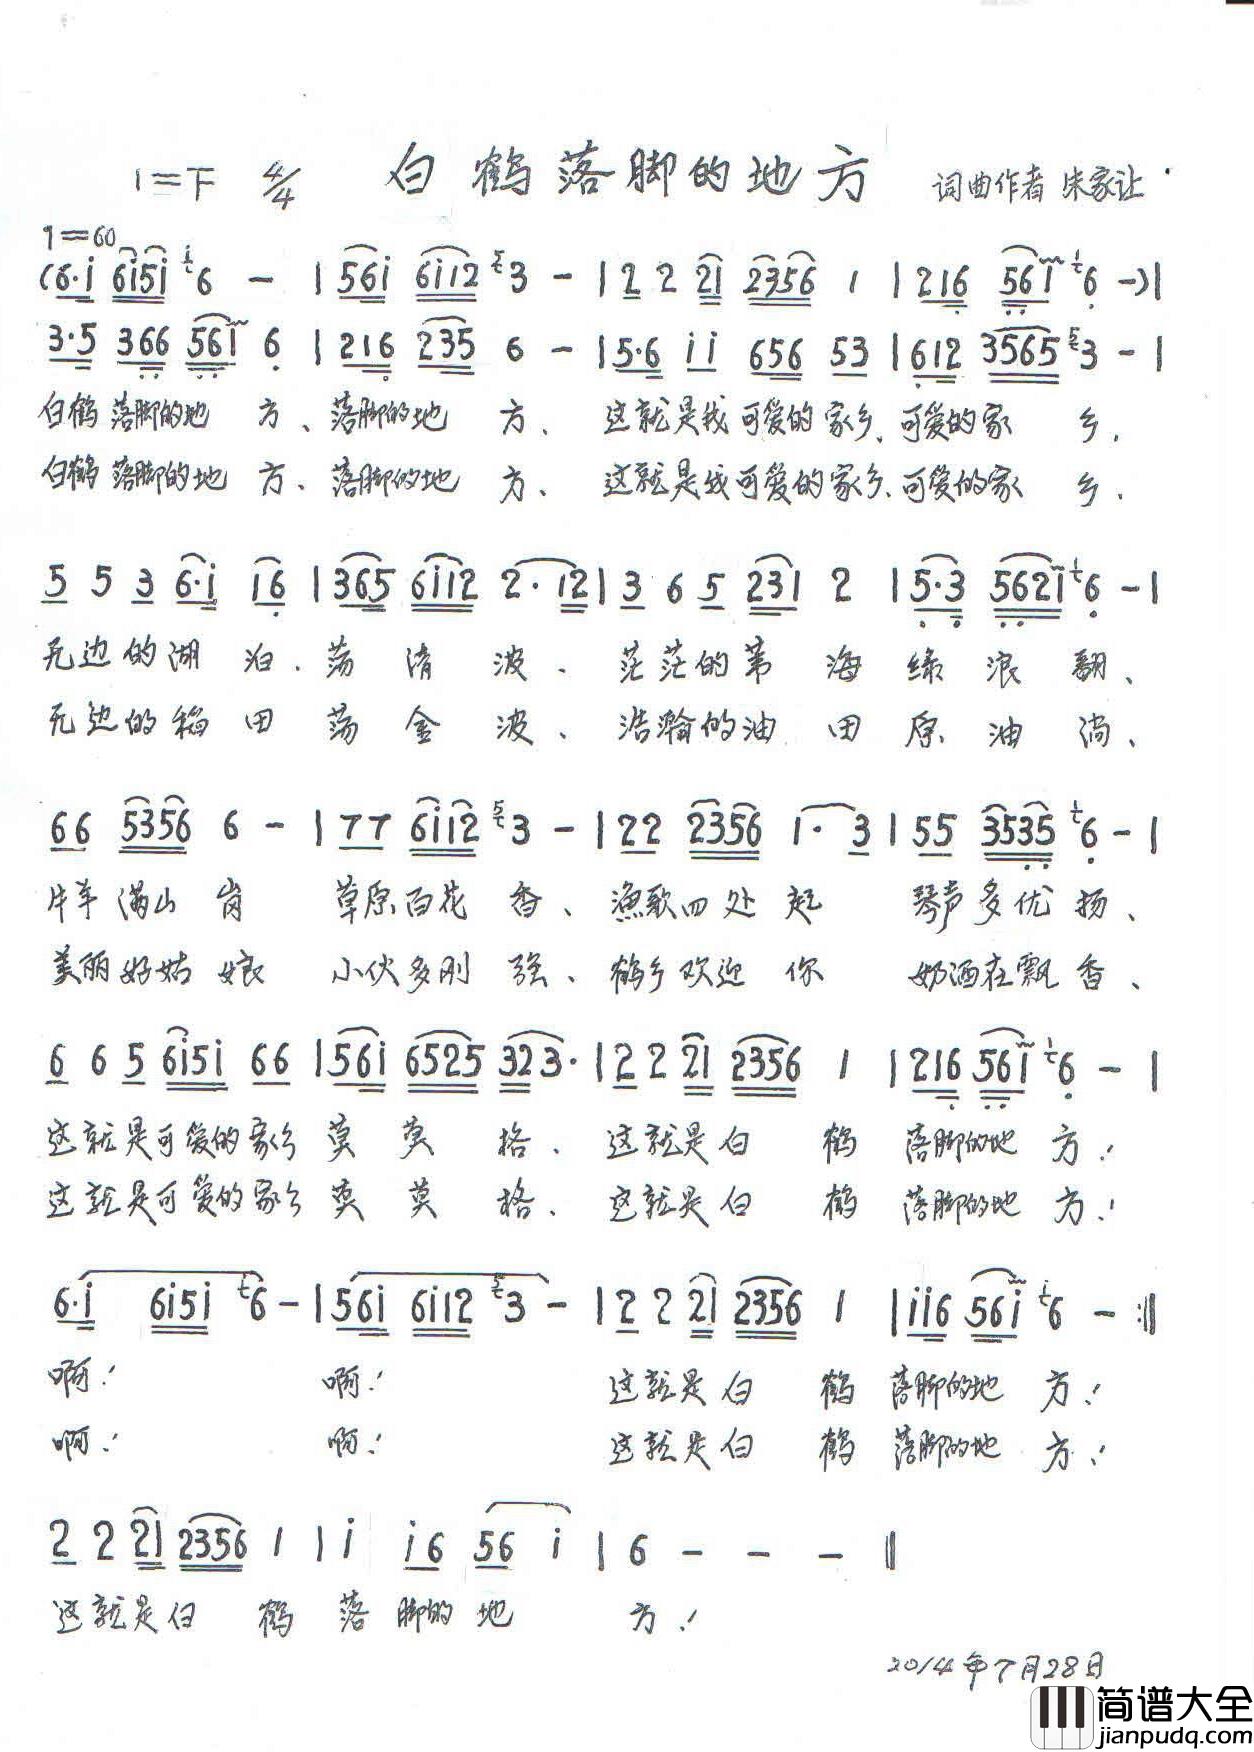 1=F 4/4 白鹤落脚的地方 词曲作者 朱家让
1=60
(6·i 6i5i 6 - | 56i 6i12 3 - | 2 2 21 2356 1 | 216 561 6 -)|
3·5 366 561 6 | 216 235 6 - | 5·6 ii 656 53 | 612 3565 3 - |
白鹤落脚的地 方、落脚的地 方、 这就是我可爱的家乡、可爱的家 乡，
白鹤落脚的地 方、落脚的地 方、 这就是我可爱的家乡、可爱的家 乡，
5 5 3 6·i 16 | 365 6i12 2·12 | 3 6 5 231 2 | 5·3 5621 6 - |
无边的湖 泊、荡 清 波、 茫茫的苇 海 绿 浪 翻、
无边的稻 田 荡 金 波、 浩瀚的油 田 原 油 淌、
66 5356 6 - | 77 6i12 3 - | 22 2356 1·3 | 55 3535 6 - |
牛羊满山 岗 草原百花 香、 渔歌四处 起 琴声多优 扬、
美丽好姑 娘 小伙多刚 强、 鹤乡欢迎 你 奶酒在飘 香、
6 6 5 6i5i 66 | 56i 6525 323· | 2 2 21 2356 1 | 216 561 6 - |
这就是可爱的家乡 莫 莫 格、 这就是白 鹤 落脚的地 方！
这就是可爱的家乡 莫 莫 格、 这就是白 鹤 落脚的地 方！
6·i 6i5i 6 - | 56i 6i12 3 - | 2 2 2i 2356 1 | ii6 56i 6 - :||
啊！ 啊！ 这就是白 鹤 落脚的地 方！
啊！ 啊！ 这就是白 鹤 落脚的地 方！
2 2 21 2356 1 | i i6 56 i | 6 - - - ||
这就是白 鹤 落 脚的 地 方！
2014年7月28日
简谱大全
jianpudq.com